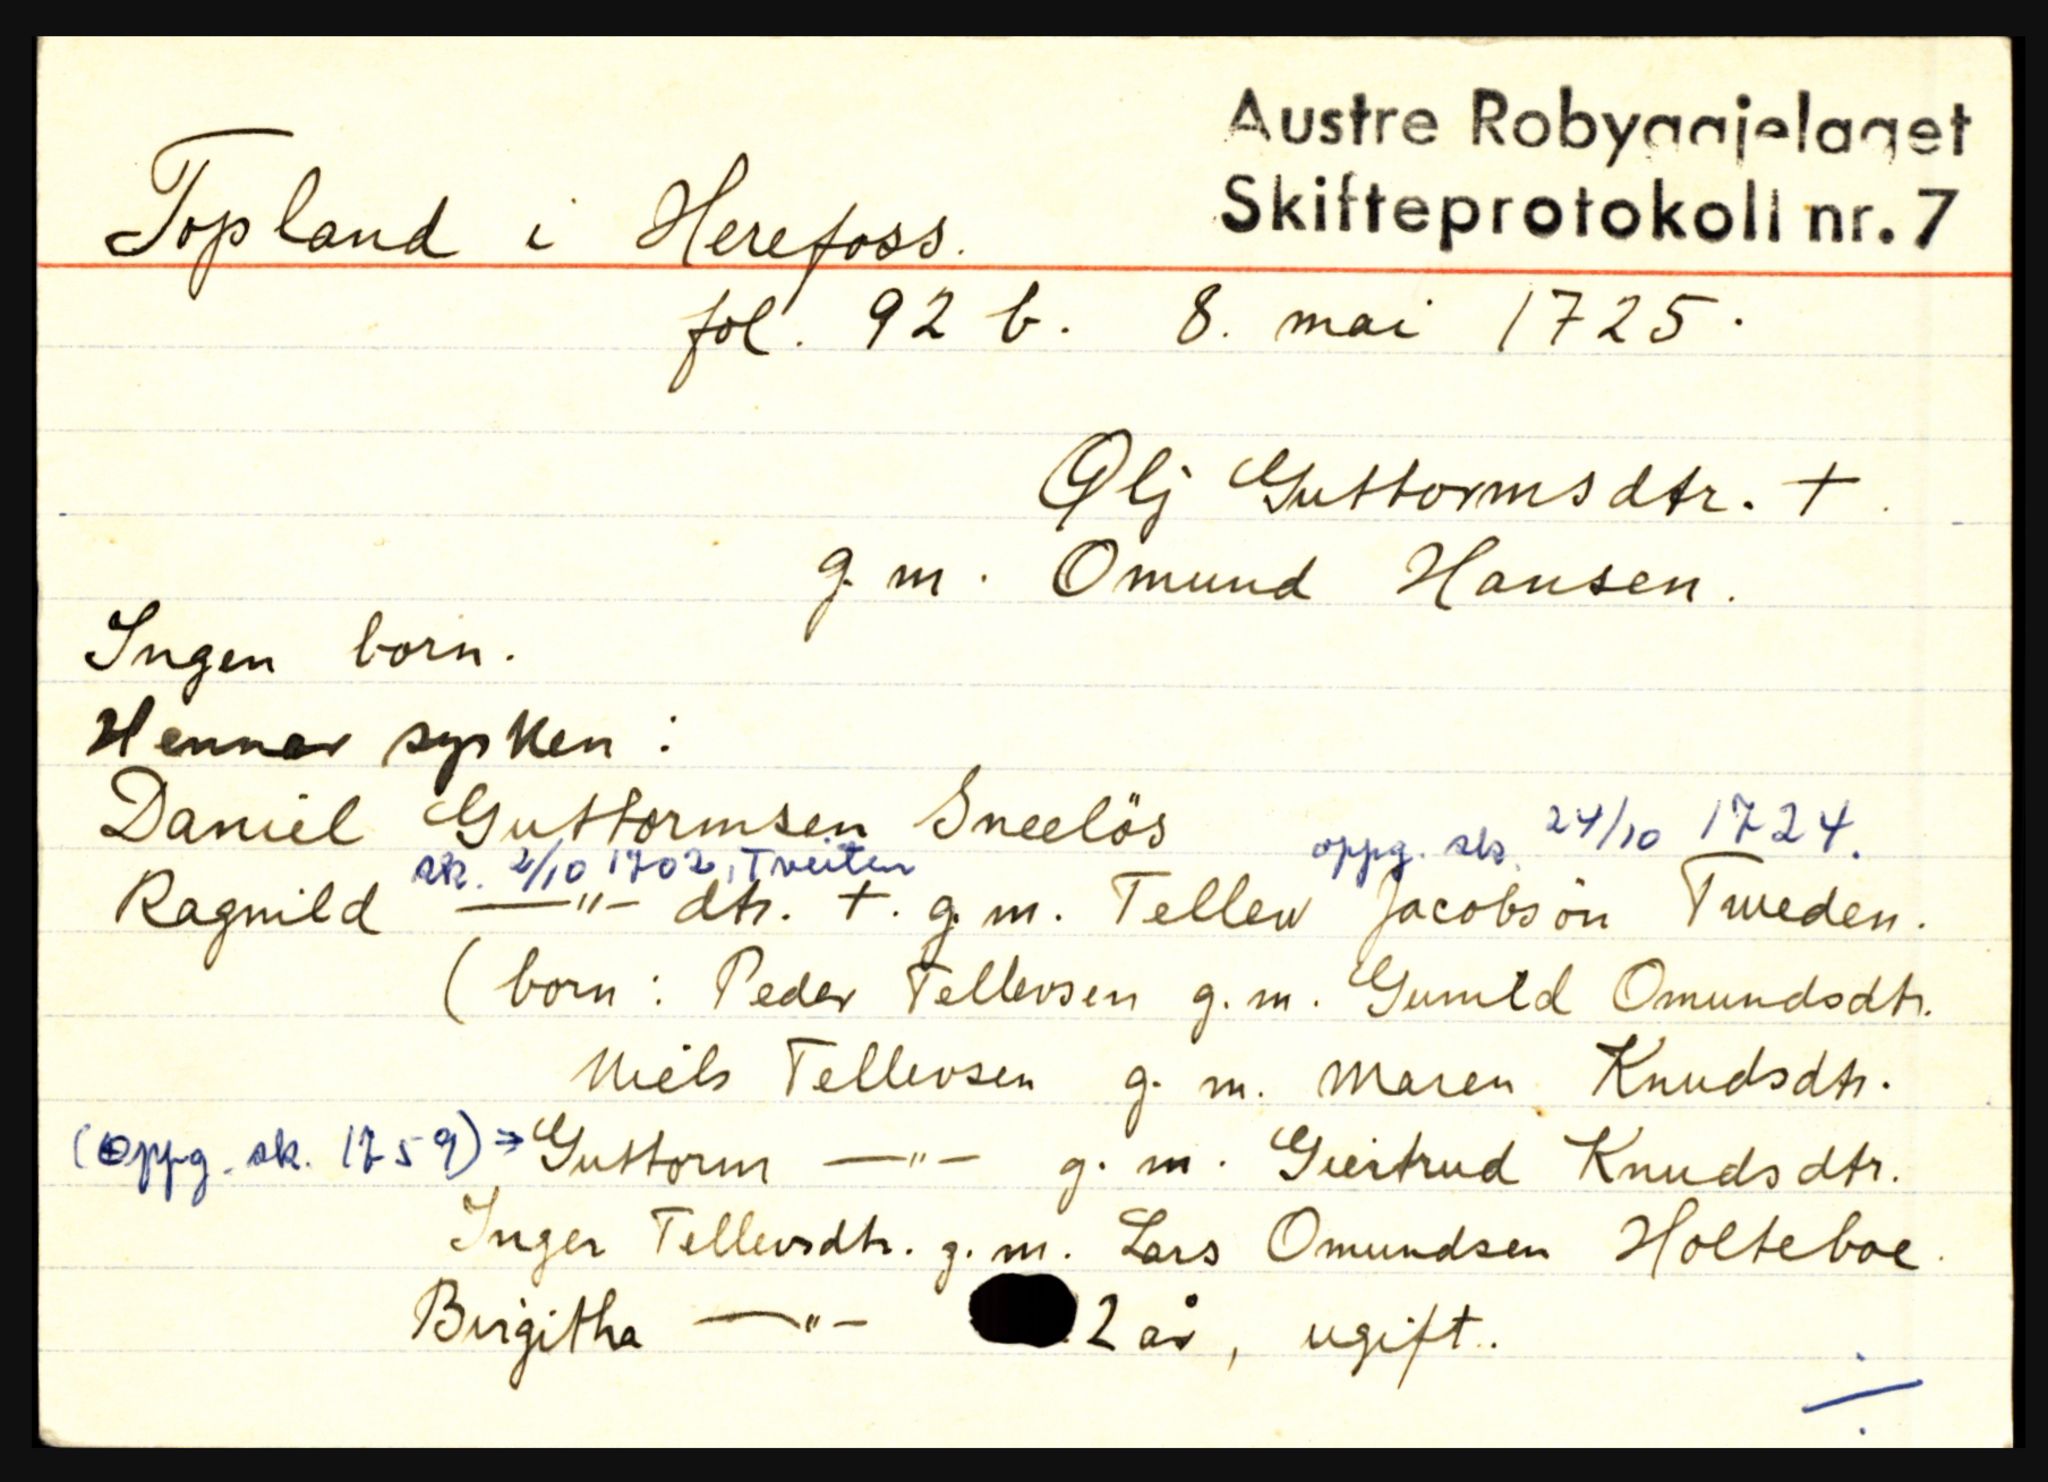 Austre Robyggjelaget
Skifteprotokoll nr. 7
Topland i Herefoss.
fol. 92 b. 8. mai 1725.
Olj Guttormsdtr. +.
g. m. Omund Hansen.
Ingen born.
Hennar sysken:
Daniel Guttormsen Sneelös
oppg. sk. 24/10 1724.
sk. 2/10 1702, Tveiten
Ragnild —"— dtr. +. g. m. Tellew Jacobsön Tweden.
(born: Peder Tellevsen g. m. Gunild Omundsdtr.
Niels Tellevsen g. m. Maren Knudsdtr.
(oppg. sk. 1759) → Guttorm —"— g. m. Giertrud Knudsdtr.
Inger Tellevsdtr. g. m. Lars Omundsen Holteboe.
Birgitha —"— 2 år, ugift.